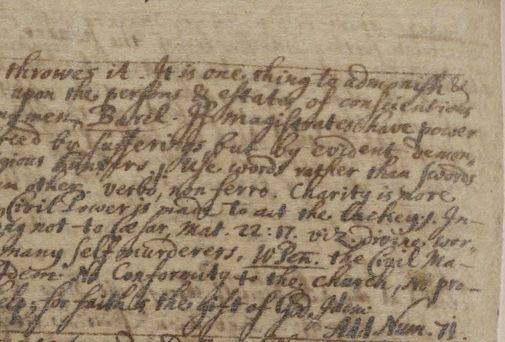 throwes it. It is one thing to admonish &
upon the persons & estates of conscientious
men, Barel. If Magistrates have power
by sufferings but by evident demon,
gious Use words rather than swords
other. verbo, non ferro. Charity is more
Civil Power is made to act the Lackeys. In-
ng not to Cæsar, Mat. 22:17. viz divine wor-
many self murderers, W Pen. the Civil Ma-
Idem. No Conformity to the church, No pro-
elp; for faith is the gift of God, Idem
Num. 71.